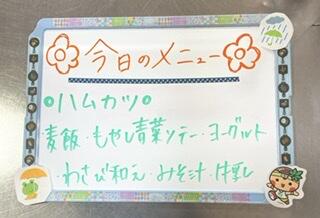 今日のメニュー
○ハムカツ○
・麦飯・もやし青菜ソテー・ヨーグルト
・わさび和え・みそ汁・牛乳